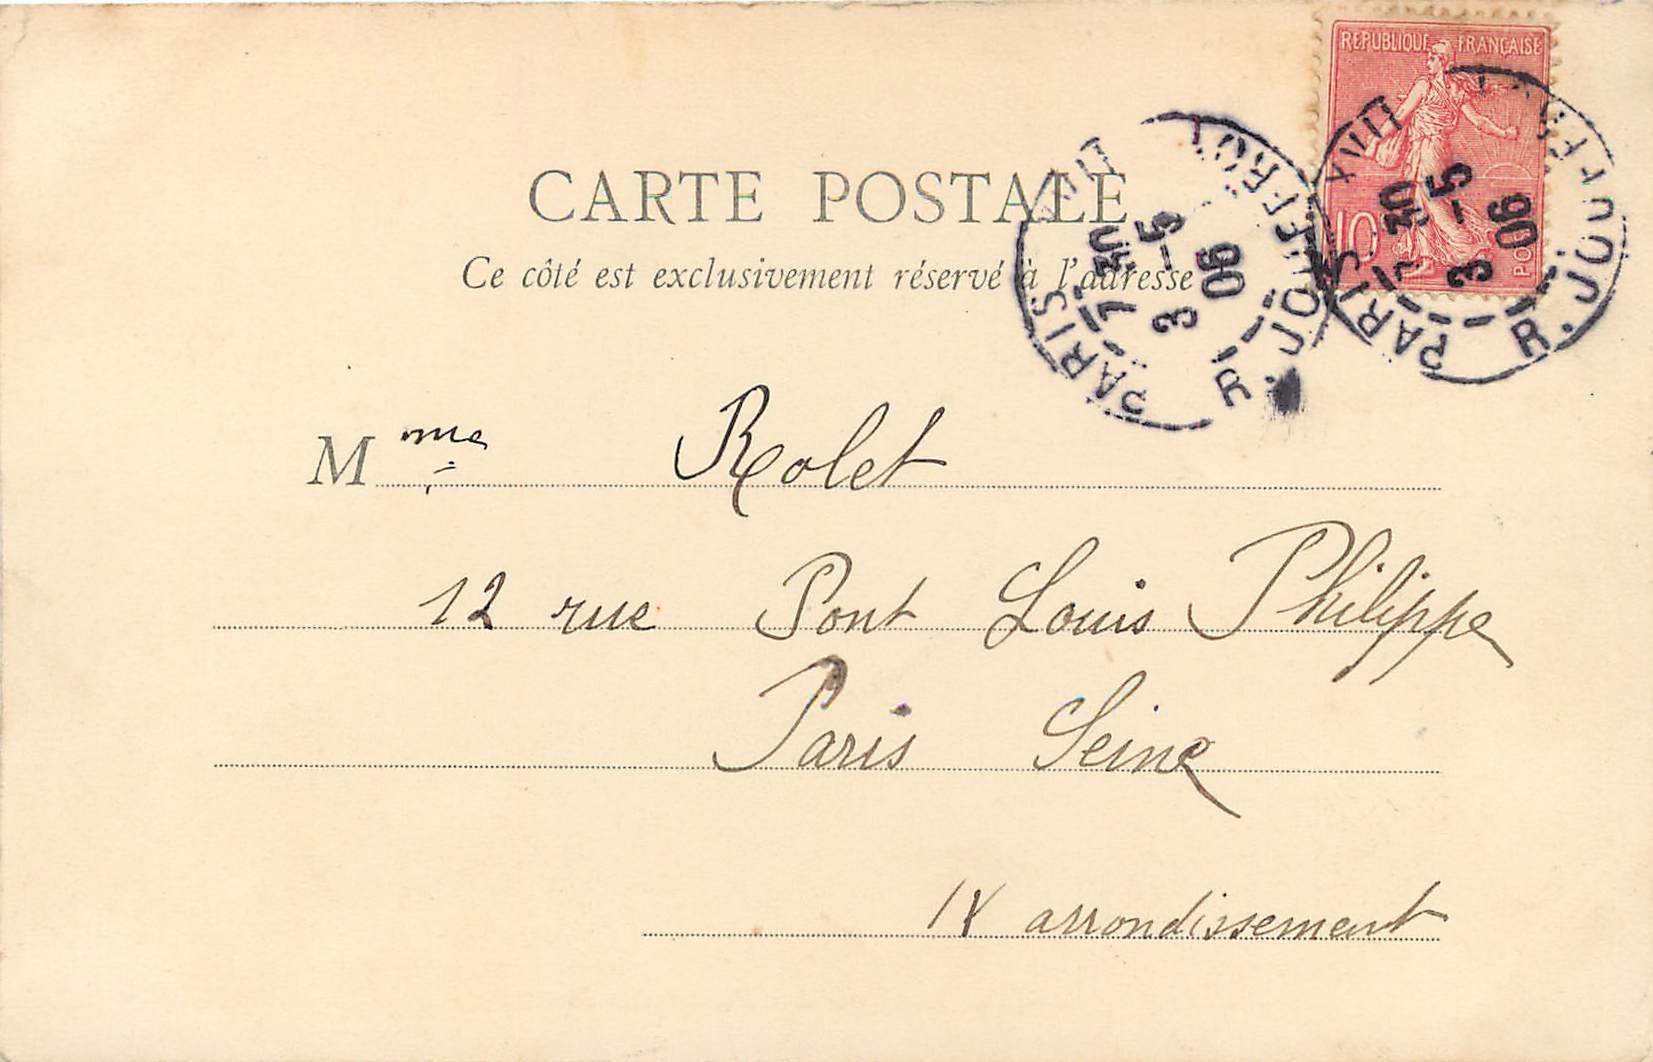 REPUBLIQUE FRANCAISE
10
POS
PARIS XVIII R. JOUFFROY
7 30
3 -5
06
PARIS XVII R. JOUFFROY
7 30
3 -5
06
CARTE POSTALE
Ce côté est exclusivement réservé à l'adresse
Mme Rolet
12 rue Pont Louis Philippe
Paris Seine
IV arrondissement